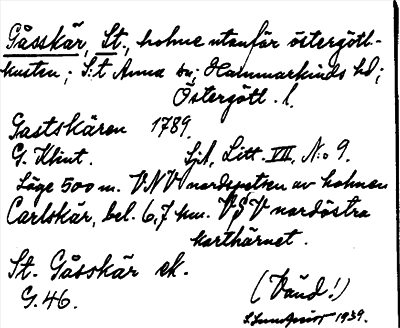 Gåsskär, St., holme utanför östergötl.-
kusten; S:t Anna sn; Hammarkinds hd;
Östergötl. l.
Gastskären 1789.
G. Klint. Sjk, Litt. VII, N:o 9.
Läge 500 m. VNV nordspetsen av holmen
Carlskär, bel. 6,7 km. VSV nordöstra
karthörnet.
St. Gåsskär ek.
G. 46.
(Vänd!)
1939.